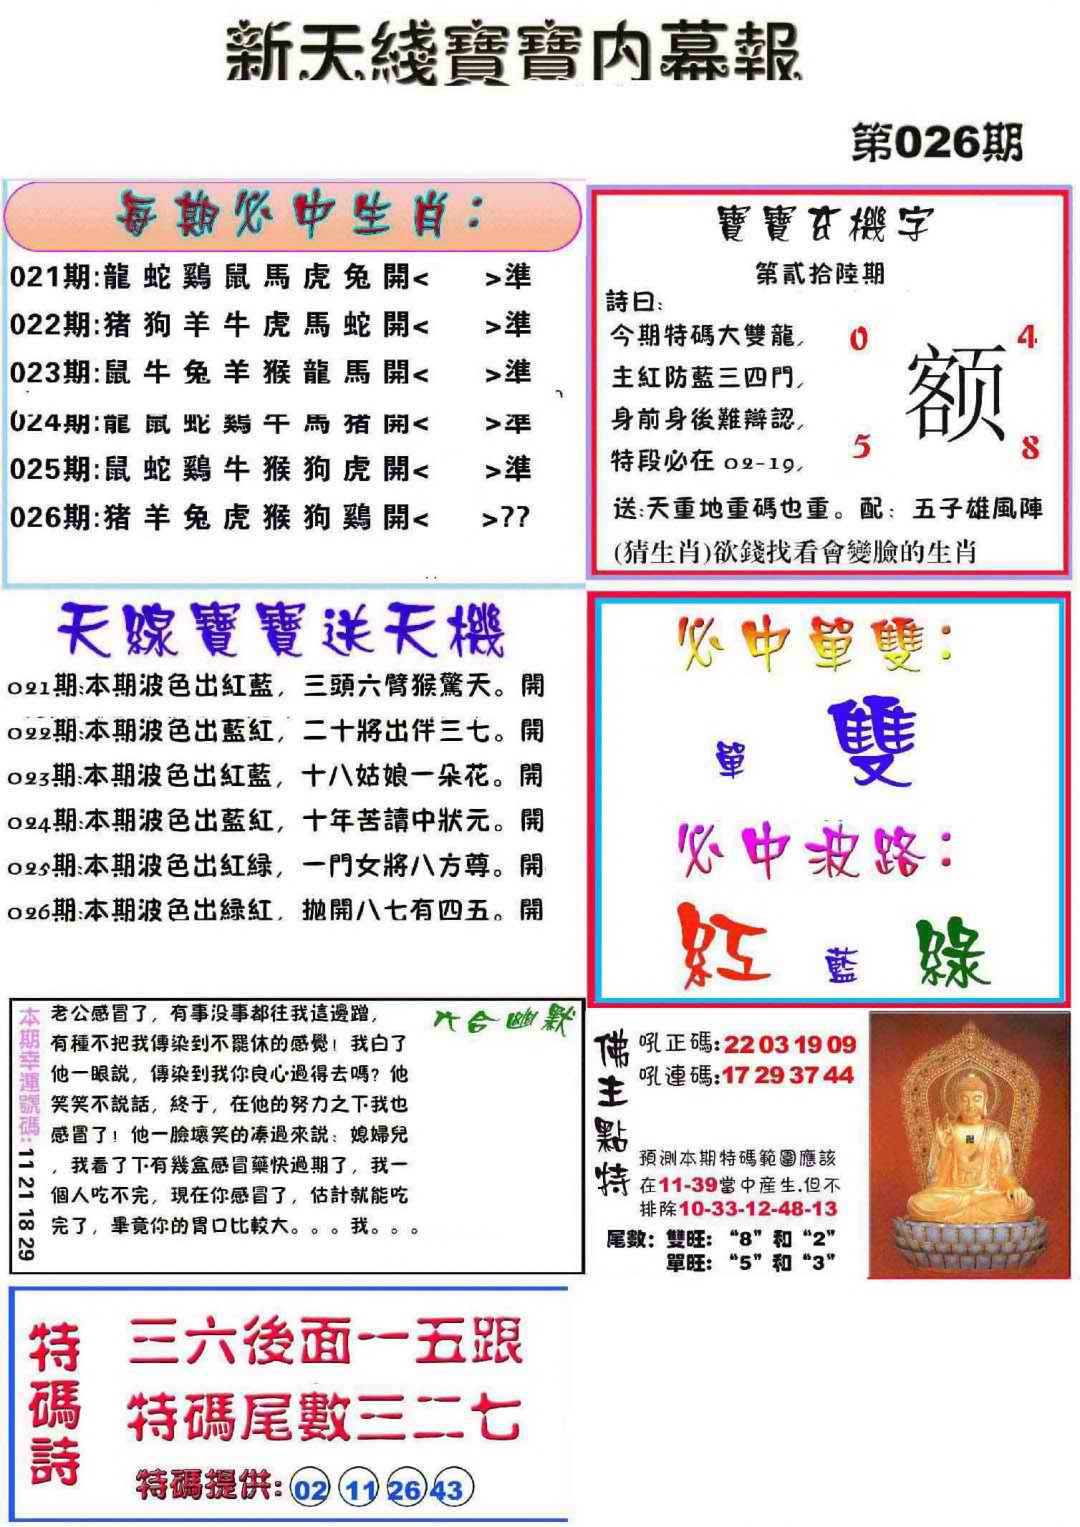 新天綫寶寶内幕報
第026期
每期必中生肖：
021期:龍蛇鷄鼠馬虎兔開< >準
022期:猪狗羊牛虎馬蛇開< >準
023期:鼠牛兔羊猴龍馬開< >準
024期:龍鼠蛇鷄牛馬猪開< >準
025期:鼠蛇鷄牛猴狗虎開< >準
026期:猪羊兔虎猴狗鷄開< >??
寶寶玄機字
第貳拾陸期
詩曰:
今期特碼大雙龍,
主紅防藍三四門,
身前身後難辯認,
特段必在 02-19,
0 4
额
5 8
送:天重地重碼也重。配：五子雄風陣
(猜生肖)欲錢找看會變臉的生肖
天線寶寶送天機
021期:本期波色出紅藍，三頭六臂猴驚天。開
022期:本期波色出藍紅，二十將出伴三七。開
023期:本期波色出紅藍，十八姑娘一朵花。開
024期:本期波色出藍紅，十年苦讀中狀元。開
025期:本期波色出紅緑，一門女將八方尊。開
026期:本期波色出緑紅，拋開八七有四五。開
必中單雙：
單 雙
必中波路：
紅 藍 綠
本期幸運號碼:11 21 18 29
六合幽默
老公感冒了，有事没事都往我這邊蹭，
有種不把我傳染到不罷休的感覺！我白了
他一眼説，傳染到我你良心過得去嗎？他
笑笑不説話，終于，在他的努力之下我也
感冒了！他一臉壞笑的凑過來説：媳婦兒
，我看了下有幾盒感冒藥快過期了，我一
個人吃不完，現在你感冒了，估計就能吃
完了，畢竟你的胃口比較大。。。我。。。
佛主點特
吼正碼:22 03 19 09
吼連碼:17 29 37 44
預測本期特碼範圍應該
在11-39當中産生.但不
排除10-33-12-48-13
尾數：雙旺：“8”和“2”
單旺：“5”和“3”
特碼詩
三六後面一五跟
特碼尾數三二七
特碼提供:02 11 26 43